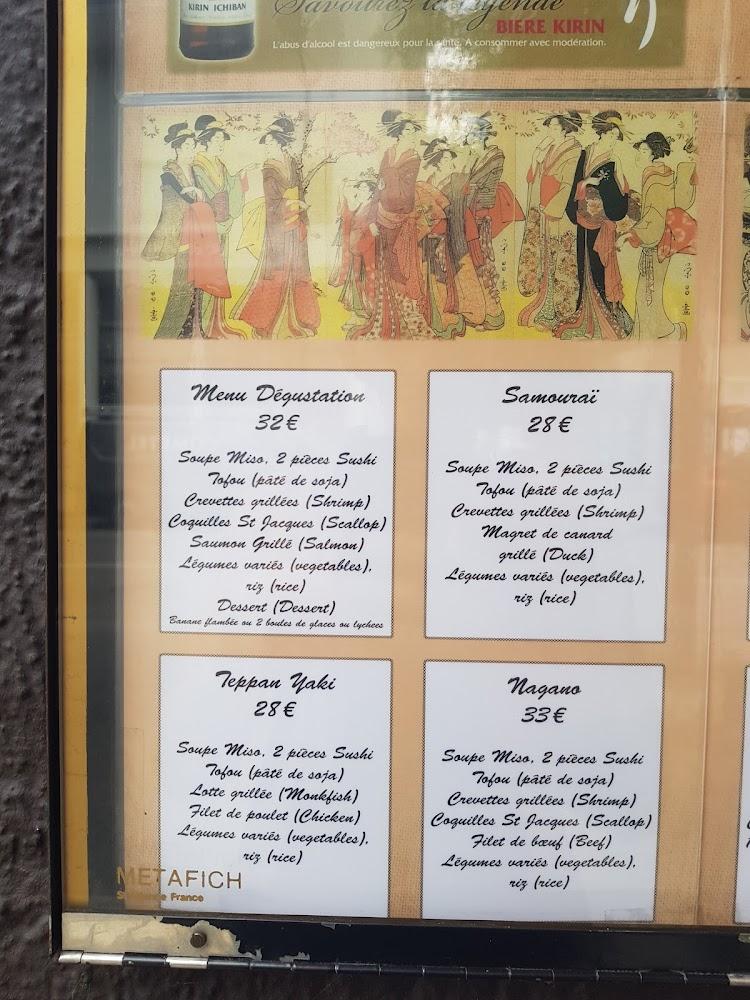 KIRIN ICHIBAN
Savourez la légende
BIERE KIRIN
L'abus d'alcool est dangereux pour la santé. A consommer avec modération.
Menu Dégustation
32€
Soupe Miso, 2 pièces Sushi
Tofou (pâté de soja)
Crevettes grillées (Shrimp)
Coquilles St Jacques (Scallop)
Saumon Grillé (Salmon)
Légumes variés (vegetables),
riz (rice)
Dessert (Dessert)
Banane flambée ou 2 boules de glaces ou lychees
Samouraï
28€
Soupe Miso, 2 pièces Sushi
Tofou (pâté de soja)
Crevettes grillées (Shrimp)
Magret de canard
grillé (Duck)
Légumes variés (vegetables),
riz (rice)
Teppan Yaki
28€
Soupe Miso, 2 pièces Sushi
Tofou (pâté de soja)
Lotte grillée (Monkfish)
Filet de poulet (Chicken)
Légumes variés (vegetables),
riz (rice)
Nagano
33€
Soupe Miso, 2 pièces Sushi
Tofou (pâté de soja)
Crevettes grillées (Shrimp)
Coquilles St Jacques (Scallop)
Filet de bœuf (Beef)
Légumes variés (vegetables),
riz (rice)
METAFICH
France